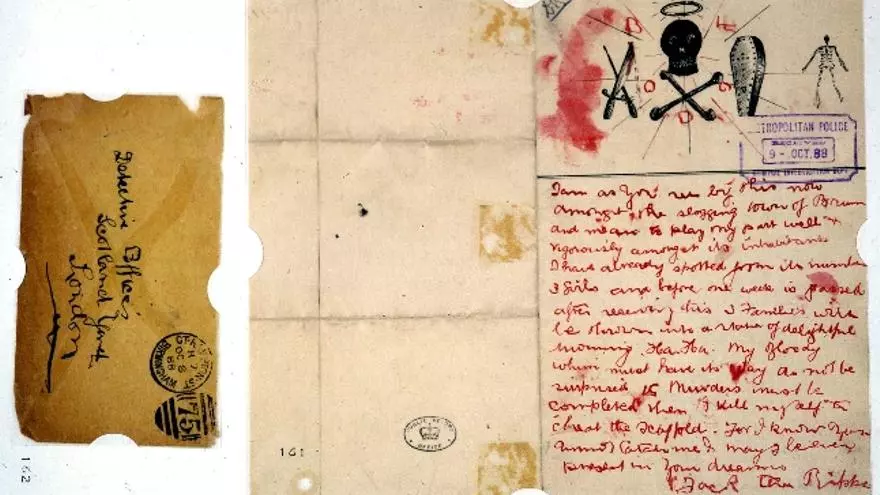 Detective Offices
Scotland Yard
London
BIRMINGHAM
OC 8
88
75
162
161
OFFICE
METROPOLITAN POLICE
RECEIVED
9-OCT.88
CRIMINAL INVESTIGATION DEPT
B
O
O
I am as you see by this now
amongst the slogging town of Brum
and mean to play my part well &
vigorously amongst its inhabitants
I have already spotted from its number
3 girls and before one week is passed
after receiving this 3 Families will
be thrown into a state of delightful
mourning. Ha. Ha. My Bloody
whim must have its way do not be
surprised 15 Murders must be
completed then I kill myself to
cheat the scaffold. For I know you
cannot catch me & I may be even
present in your dreams
Jack the Ripper